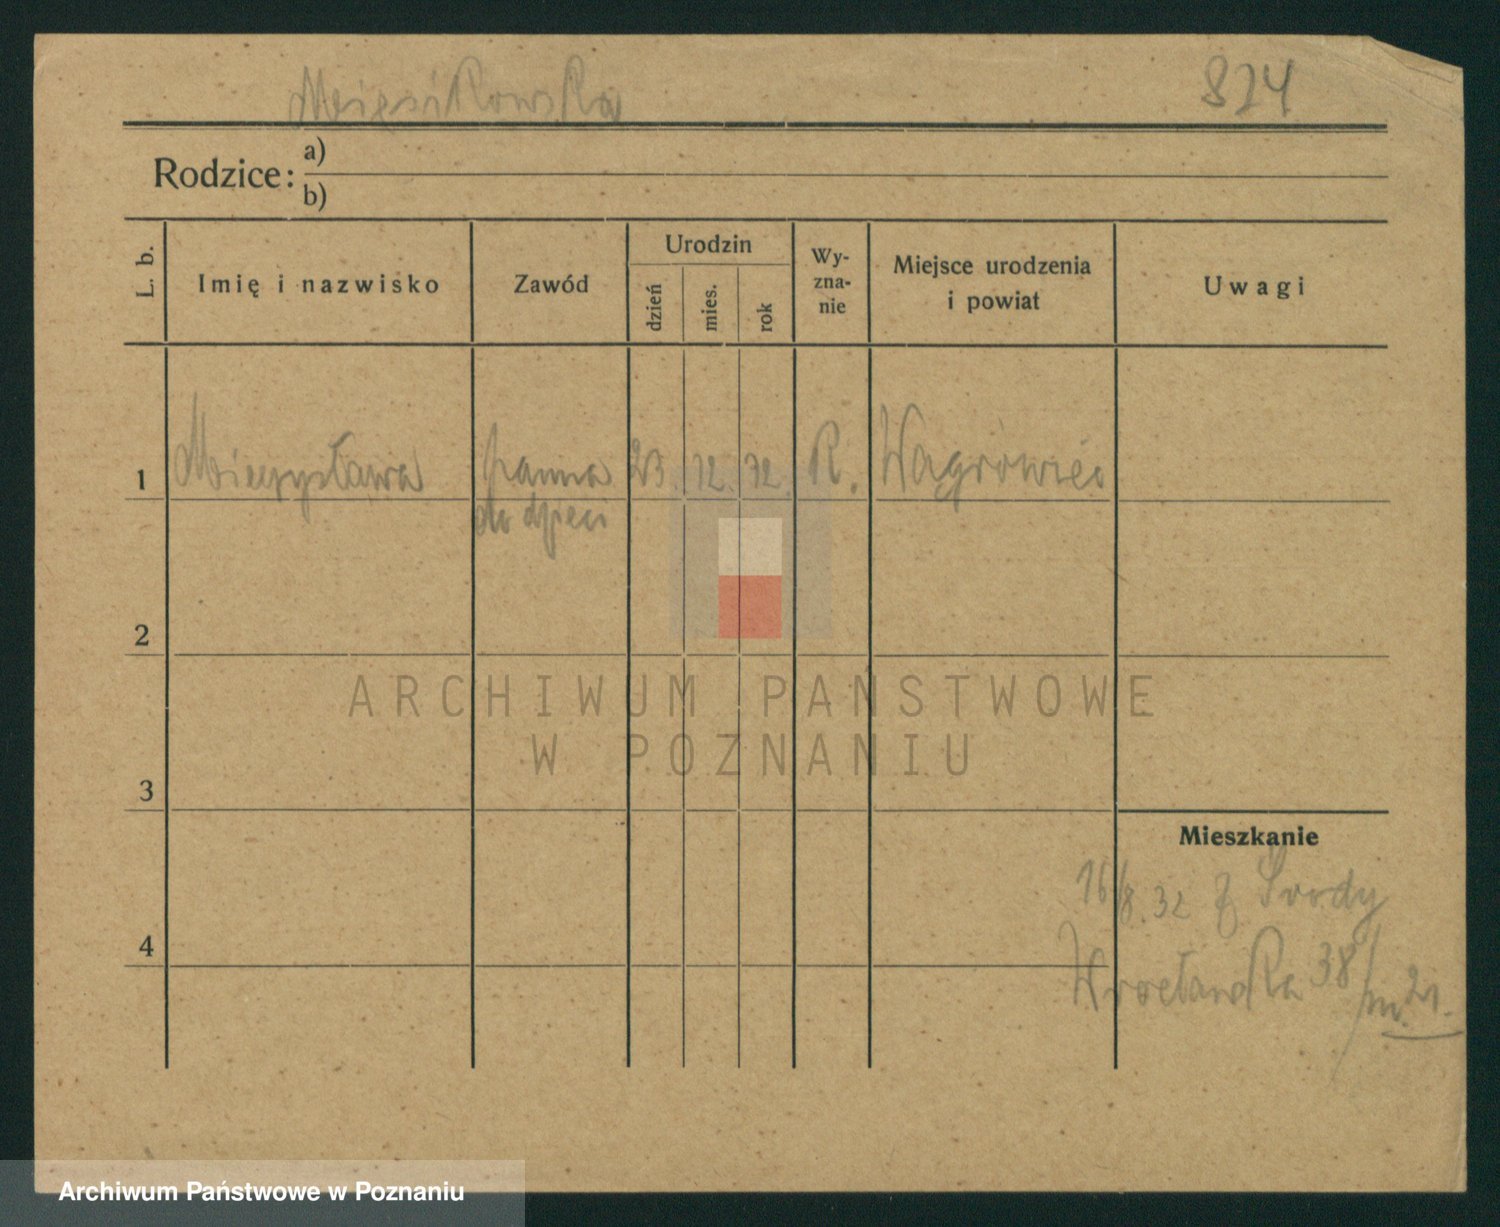 Mięsikowska 824
Rodzice: a)
b)
L. b. Imię i nazwisko Zawód Urodzin dzień mies. rok Wy-zna-nie Miejsce urodzenia i powiat Uwagi
1 Mieczysława panna 23. 12. 12. R. Wągrówiec
do dzieci
2
ARCHIWUM PAŃSTWOWE
W POZNANIU
3
Mieszkanie
16/8. 32 z Środy
4
Wrocławska 38/m. 21.
Archiwum Państwowe w Poznaniu